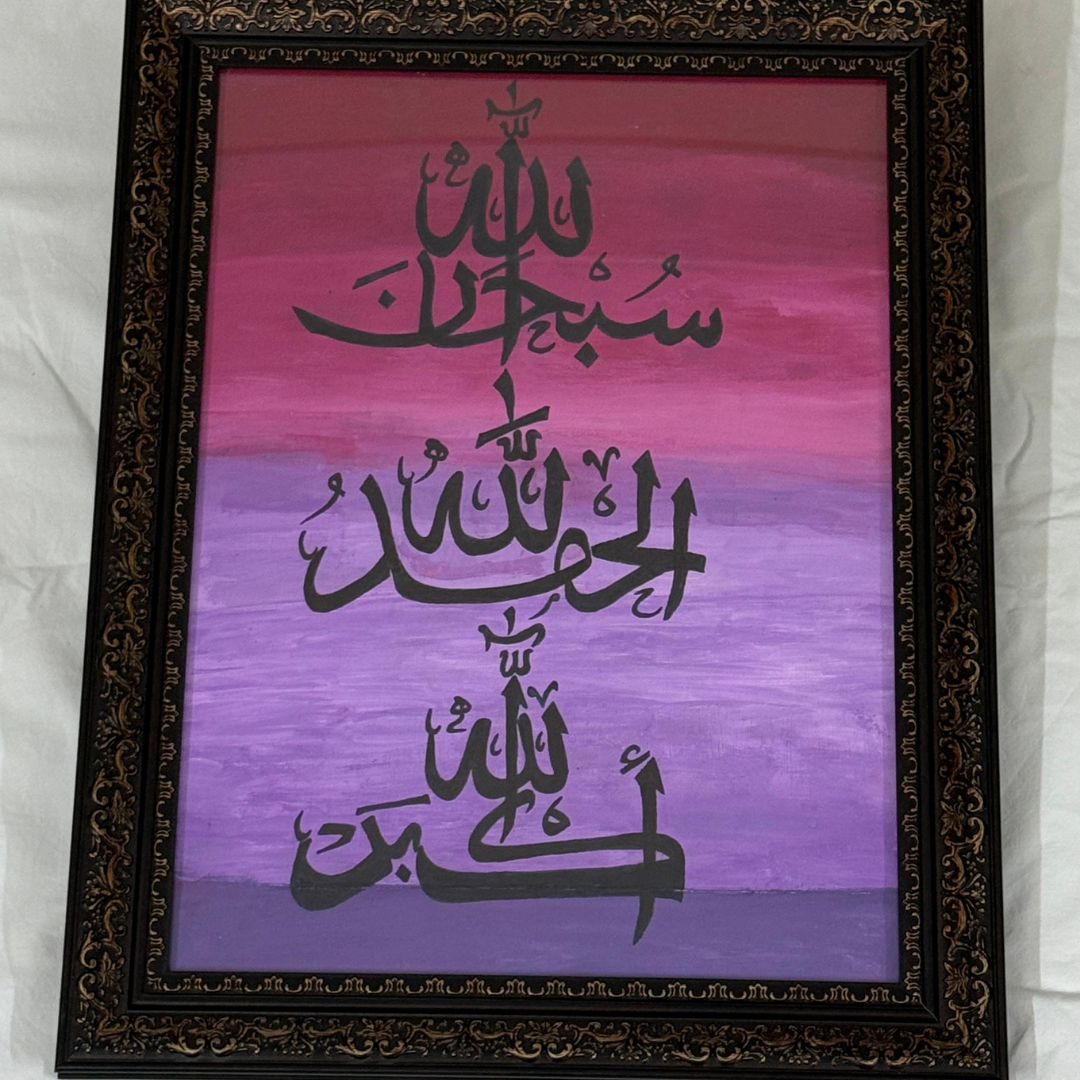 سُبْحَانَ اللّٰهُ
الْحَمْدُ لِلّٰهِ
اللّٰهُ أَكْبَرْ